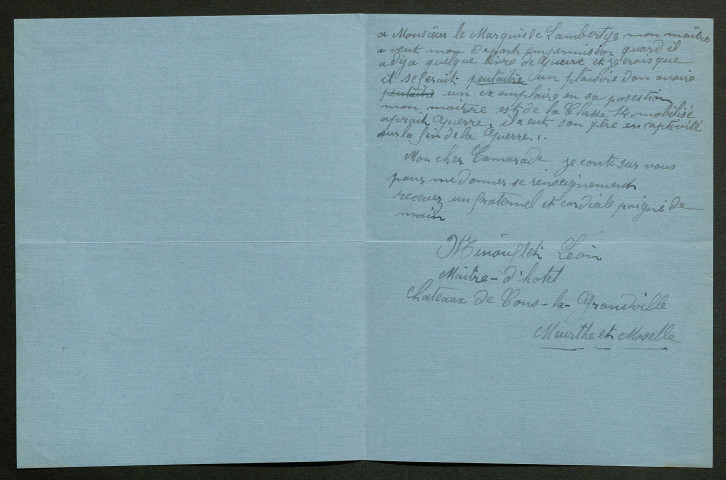 a Monsieur le Marquis de Lambertye mon maître
avent mon depart enpermission quard il
a deja quelque livre de Guerre et recrois que
il se ferait peutaitre un plaisire d'en avoire
peutaitre un exemplaire en sa posestion
mon maitre est de la Classe 14 mobilisé
aprait Guerre, il a eut son père en captivité
sur la fin de la Guerre.
Mon cher Camarade je conte sur vous
pour me donner se renseignement
recevez un fraternel et cordiale poigné de
main
Léon
Maître-d'hotel
Chateaux de Cons-la-Grandville
Meurthe et Moselle